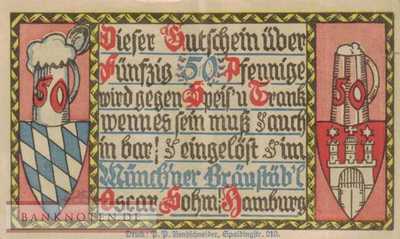 Dieser Gutschein über
Fünfzig 50 Pfennige
wird gegen Speis u Trank
wenn es sein muß auch
in bar! eingelöst im
Münchner Bräustüb'l
Oscar Sohm: Hamburg
50
50
Druck: P. P. Spaldingstr. 210.
BANKNOTEN.DE